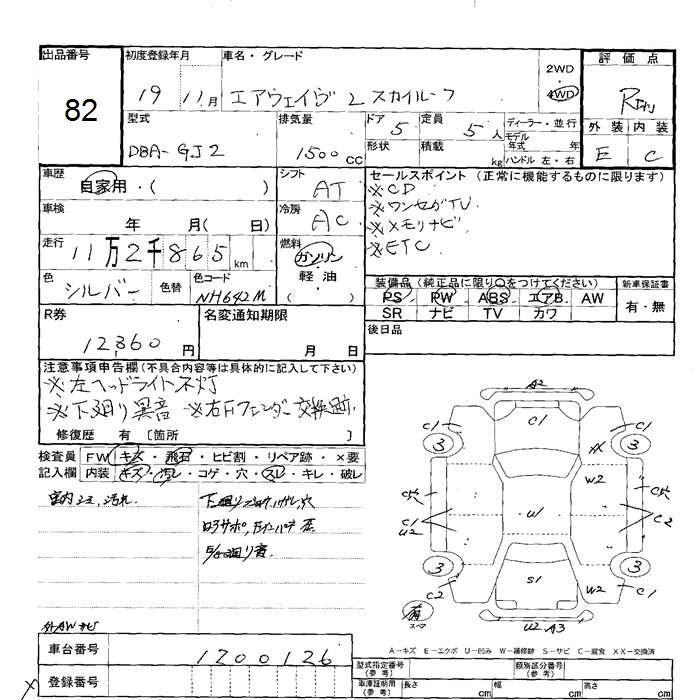 出品番号 82
初度登録年月 19 11月
車名・グレード エアウェイヴ L スカイルーフ
2WD・4WD
評価点
型式 DBA-GJ2
排気量 1500cc
ドア 5 形状
定員 5人 積載 kg
ディーラー・並行
モデル年式 年
ハンドル 左・右
外装 内装
E C
車歴 自家用・( )
シフト AT
セールスポイント (正常に機能するものに限ります)
※CD
※ワンセグTV
※メモリナビ
※ETC
車検 年 月( 日)
冷房 AC
走行 11万2千865km
燃料 ガソリン 軽・油 ( )
色 シルバー 色替
色コード NH642M
装備品 (純正品に限り○をつけてください)
PS PW ABS エアB AW
SR ナビ TV カワ
新車保証書 有・無
R券 12,360円
名変通知期限 月 日
後日品
注意事項申告欄 (不具合内容等は具体的に記入して下さい)
※左ヘッドライト不灯
※下廻り異音 ※右Fフェンダー交換跡
修復歴 有 〔箇所 〕
検査員 FW キズ・飛石・ヒビ割・リペア跡・×要
記入欄 内装 キズ・汚レ・コゲ・穴・スレ・キレ・破レ
A2
C1 C1 C1
3 3
XX
W2
C1
U2
U1
C2
3 3
C2 S1 W2 C1
有 スペア
U2 A3
A-キズ E-エクボ U-凹み W-補修跡 S-サビ C-腐食 XX-交換済
外AW ナビ
車台番号 1200126
登録番号
型式指定番号 (参考)
類別区分番号 (参考)
車庫証明用 (参考) 長さ cm 幅 cm 高さ cm